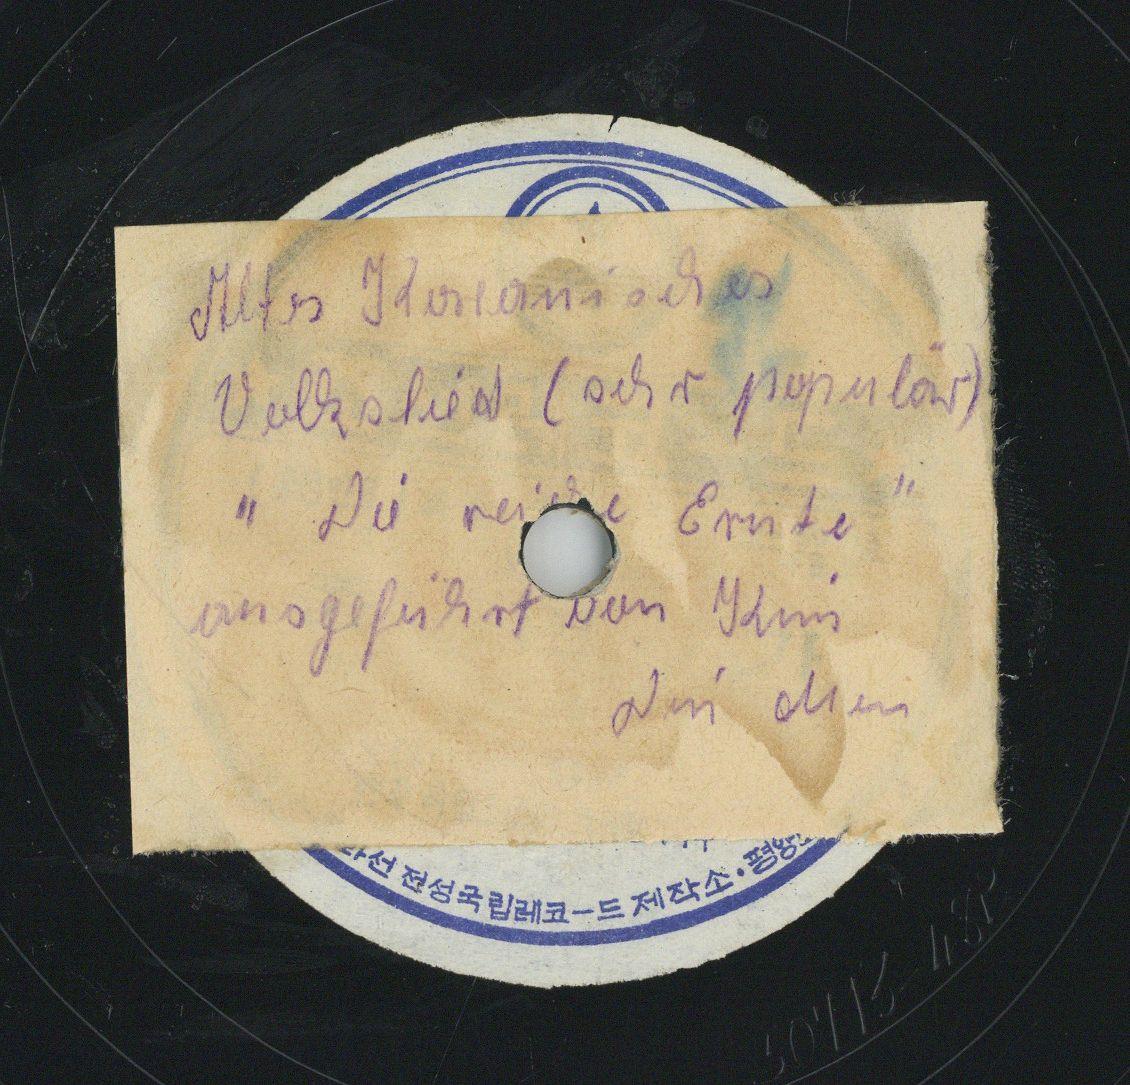 Altes Koreanisches
Volkslied (sehr populär)
" Die reiche Ernte "
ausgeführt von Kim
선전성국립레코ー드 제작소・평양